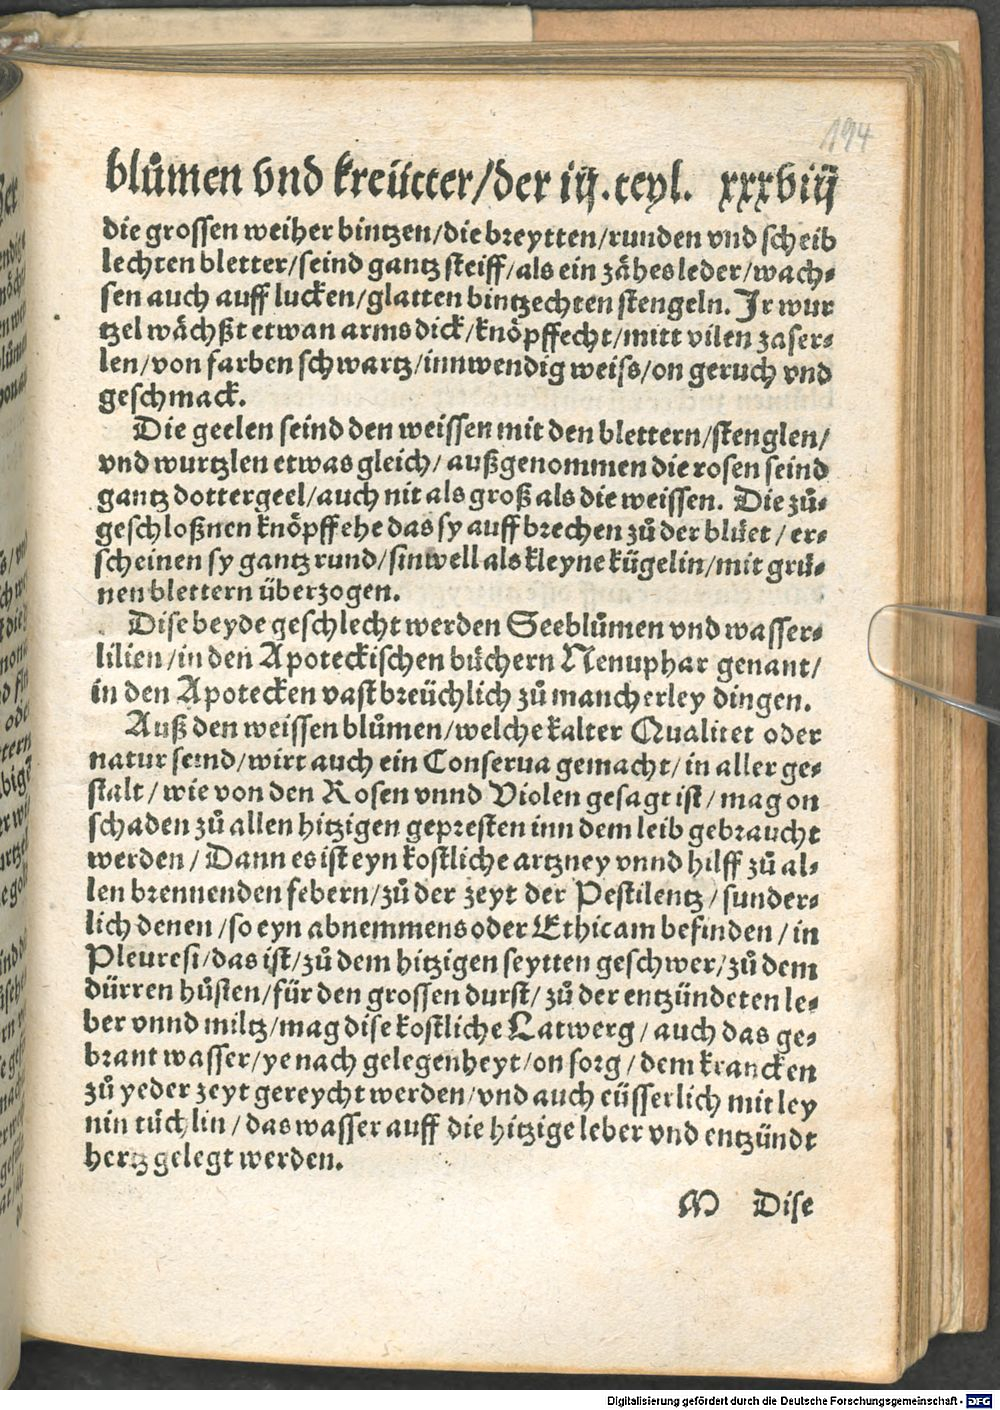 194
blůmen vnd kreütter/der iij.teyl. xxxviij
die grossen weiher bintzen/die breytten/runden vnd scheib
lechten bletter/seind gantz steiff/als ein zähes leder/wach⸗
sen auch auff lucken/glatten bintzechten stengeln. Jr wur
tzel wächßt etwan arms dick/knöpffecht/mitt vilen zaser⸗
len/von farben schwartz/innwendig weiss/on geruch vnd
geschmack.
Die geelen seind den weissen mit den blettern/stenglen/
vnd wurtzlen etwas gleich/außgenommen die rosen seind
gantz dottergeel/auch nit als groß als die weissen. Die zů⸗
geschloßnen knöpff ehe das sy auff brechen zů der blüet/er⸗
scheinen sy gantz rund/sinwell als kleyne kügelin/mit grü⸗
nen blettern überzogen.
Dise beyde geschlecht werden Seeblůmen vnd wasser⸗
lilien/in den Apoteckischen büchern Nenuphar genant/
in den Apotecken vast breüchlich zů mancherley dingen.
Auß den weissen blůmen/welche kalter Qualitet oder
natur seind/wirt auch ein Conserua gemacht/in aller ge⸗
stalt/wie von den Rosen vnnd Violen gesagt ist/mag on
schaden zů allen hitzigen gepresten inn dem leib gebraucht
werden/Dann es ist eyn kostliche artzney vnnd hilff zů al⸗
len brennenden febern/zů der zeyt der Pestilentz/sunder⸗
lich denen/so eyn abnemmens oder Ethicam befinden/in
Pleuresi/das ist/zů dem hitzigen seytten geschwer/zů dem
dürren hůsten/für den grossen durst/zů der entzündeten le⸗
ber vnnd miltz/mag dise kostliche Latwerg/auch das ge⸗
brant wasser/ye nach gelegenheyt/on sorg/dem krancken
zů yeder zeyt gereycht werden/vnd auch eüsserlich mit ley
nin tüchlin/das wasser auff die hitzige leber vnd entzündt
hertz gelegt werden.
M Dise
Digitalisierung gefördert durch die Deutsche Forschungsgemeinschaft - DFG